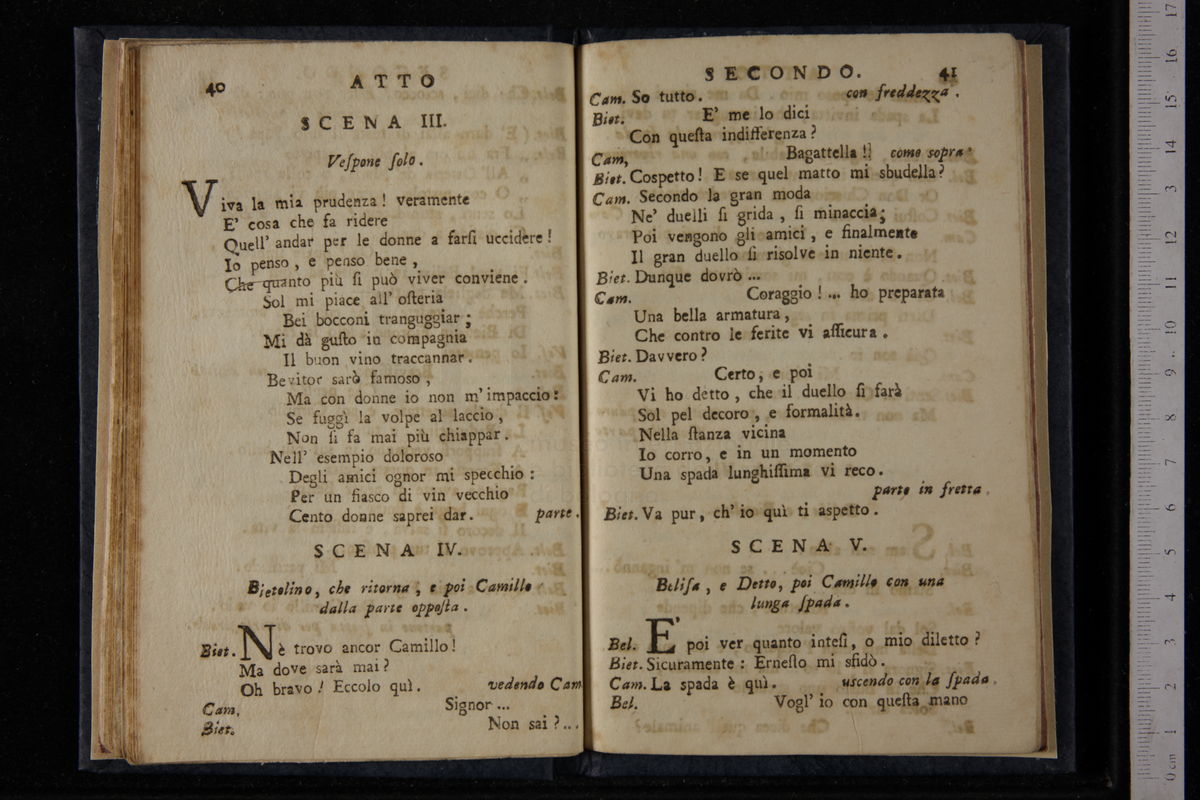 40
ATTO
SCENA III.
Veſpone ſolo.
Viva la mia prudenza! veramente
E' cosa che fa ridere
Quell' andar per le donne a farſi uccidere!
Io penso, e penso bene,
Che quanto più ſi può viver conviene.
Sol mi piace all' oſteria
Bei bocconi tranguggiar;
Mi dà guſto in compagnia
Il buon vino traccannar.
Bevitor sarò famoso,
Ma con donne io non m' impaccio:
Se fuggì la volpe al laccio,
Non ſi fa mai più chiappar.
Nell' esempio doloroso
Degli amici ognor mi specchio:
Per un fiasco di vin vecchio
Cento donne saprei dar. parte.
SCENA IV.
Bietolino, che ritorna, e poi Camillo
dalla parte oppoſta.
Biet. Nè trovo ancor Camillo!
Ma dove sarà mai?
Oh bravo! Eccolo quì. vedendo Cam
Cam. Signor...
Biet. Non sai?...
SECONDO.
41
Cam. So tutto. con freddezza.
Biet. E' me lo dici
Con queſta indifferenza?
Cam, Bagattella!! como sopra
Biet. Cospetto! E se quel matto mi sbudella?
Cam. Secondo la gran moda
Ne' duelli ſi grida, ſi minaccia;
Poi vengono gli amici, e finalmente
Il gran duello ſi risolve in niente.
Biet. Dunque dovrò ...
Cam. Coraggio! ... ho preparata
Una bella armatura,
Che contro le ferite vi aſſicura.
Biet. Davvero?
Cam. Certo, e poi
Vi ho detto, che il duello ſi farà
Sol pel decoro, e formalità.
Nella ſtanza vicina
Io corro, e in un momento
Una spada lunghiſſima vi reco.
parte in fretta.
Biet. Va pur, ch' io quì ti aspetto.
SCENA V.
Beliſa, e Detto, poi Camillo con una
lunga ſpada.
Bel. E' poi ver quanto inteſi, o mio diletto?
Biet. Sicuramente: Erneſto mi sfidò.
Cam. La spada è quì. uscendo con la ſpada.
Bel. Vogl' io con queſta mano
0 cm 1 2 3 4 5 6 7 8 9 10 11 12 13 14 15 16 17